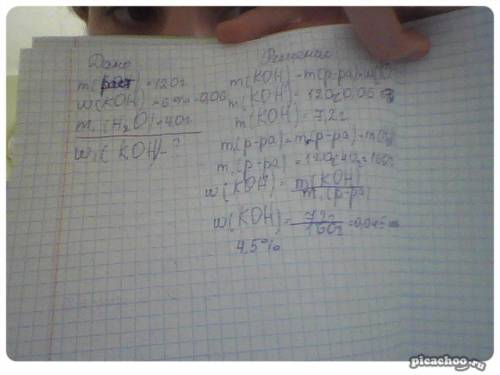 Дано
m(раст)=120г
w(KOH)=6%=0,06
m.(H₂O)=40г
w.(KOH)-?
Решение
m(KOH)=m(р-ра)·w(
m(KOH)=120·0,06
m(KOH)=7,2г
m.(р-ра)=m(р-ра)+m(
m.(р-ра)=120г+40г=160г
w(KOH)=m(KOH)/m.(р-ра)
w(KOH)=7,2г/160г=0,045
4,5%
picachoo.ru